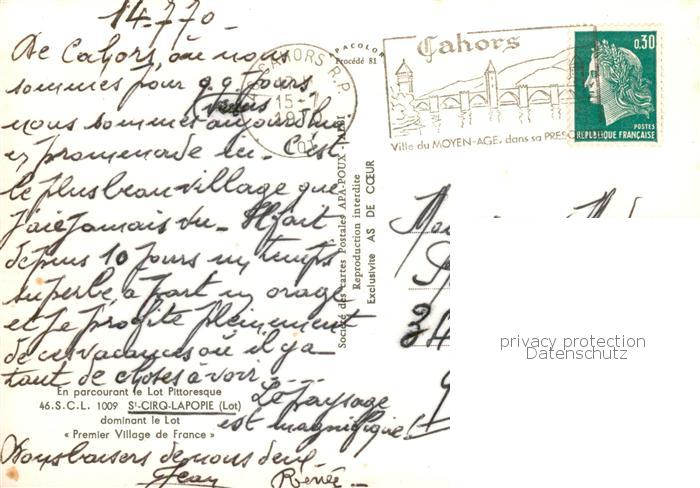 14.7.70
De Cahors, où nous
sommes pour qq jours
(venus
nous sommes aujourd'hui
en promenade ici - C'est
le plus beau village que
j'aie jamais vu - Il fait
depuis 10 jours un temps
superbe, à part un orage
et je profite pleinement
de ces vacances où il y a
tant de choses à voir ...
Le paysage
est magnifique !
En parcourant le Lot Pittoresque
46.S.C.L. 1009 St-CIRQ-LAPOPIE (Lot)
dominant le Lot
« Premier Village de France »
Bons baisers de nous deux
Jean Renée -
APACOLOR
Procédé 81
Société des cartes Postales APA-POUX - ALBI
Reproduction interdite
Exclusivité AS DE CŒUR
CAHORS R.P.
15-7
Cahors
Ville du MOYEN-AGE, dans sa
0,30
POSTES
REPUBLIQUE FRANÇAISE
34
privacy protection
Datenschutz